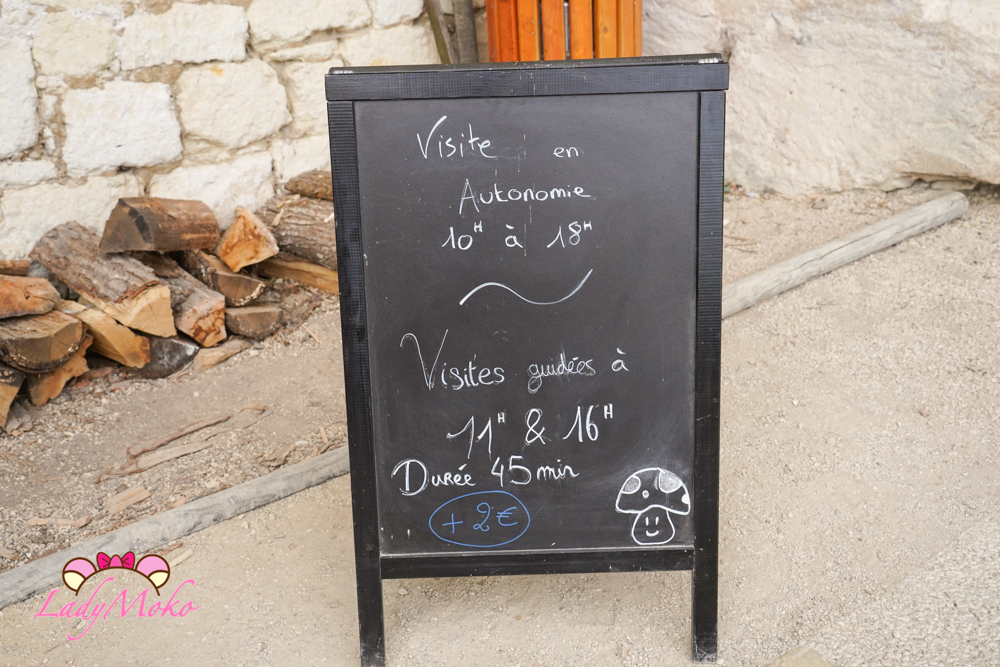 Visite en
Autonomie
10H à 18H
Visites guidées à
11H & 16H
Durée 45min
+2€
LadyMoko